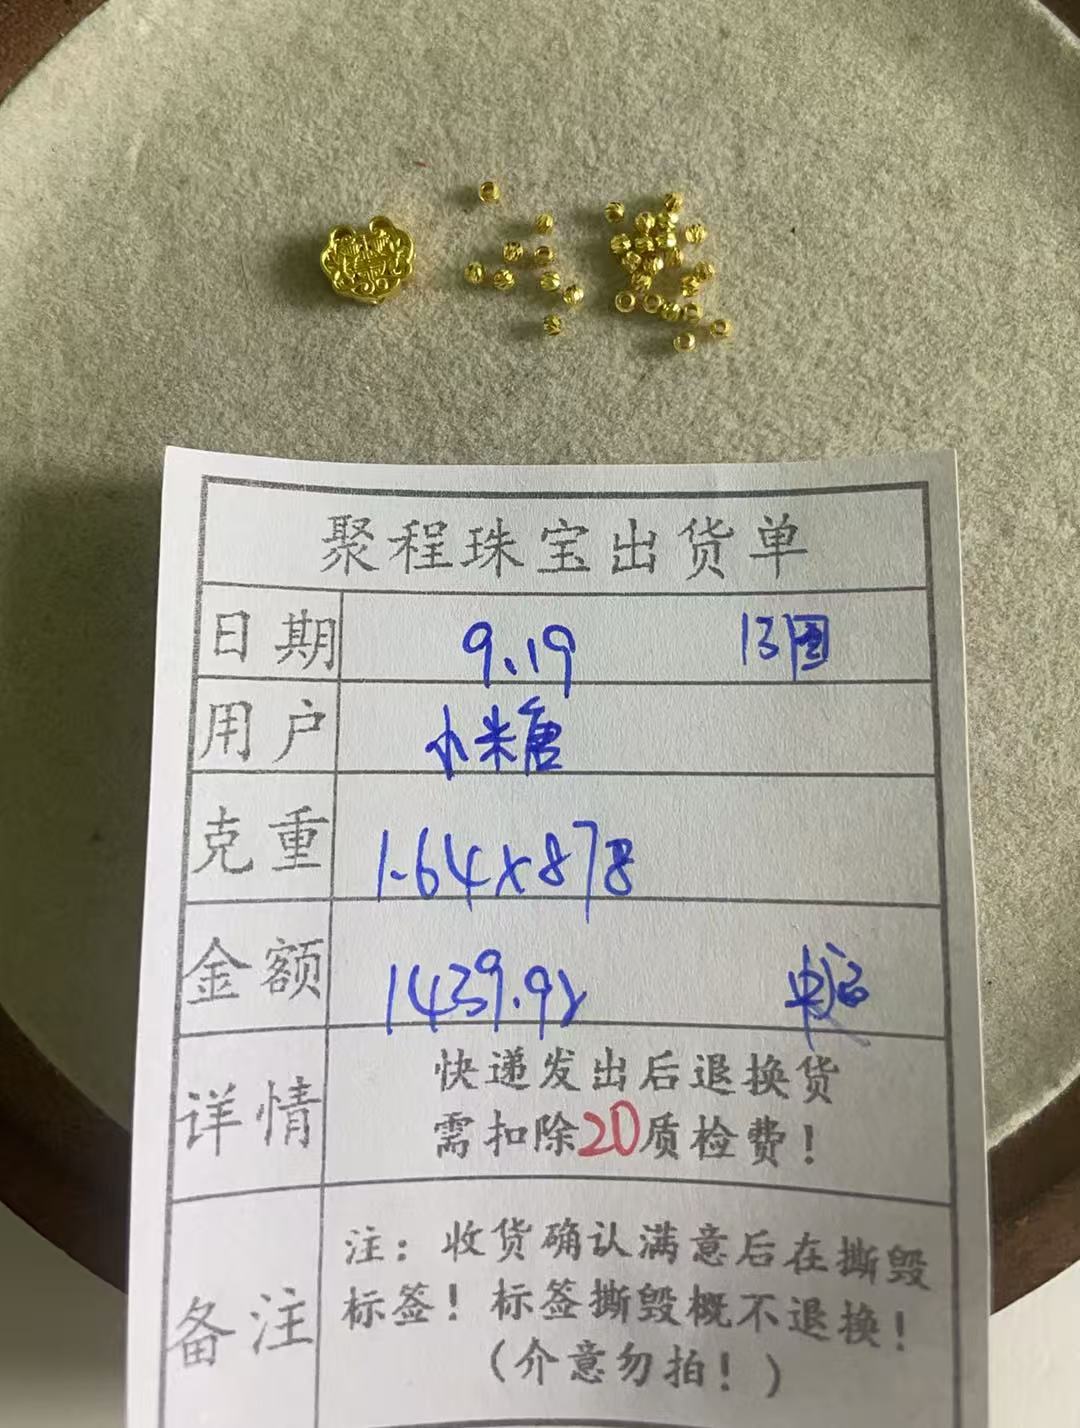 聚程珠宝出货单
日期 9.19
用户 小米唐
克重 1.64×878
金额 1439.92
详情 快递发出后退换货
需扣除20质检费！
备注 注：收货确认满意后在撕毁
标签！标签撕毁概不退换！
（介意勿拍！）